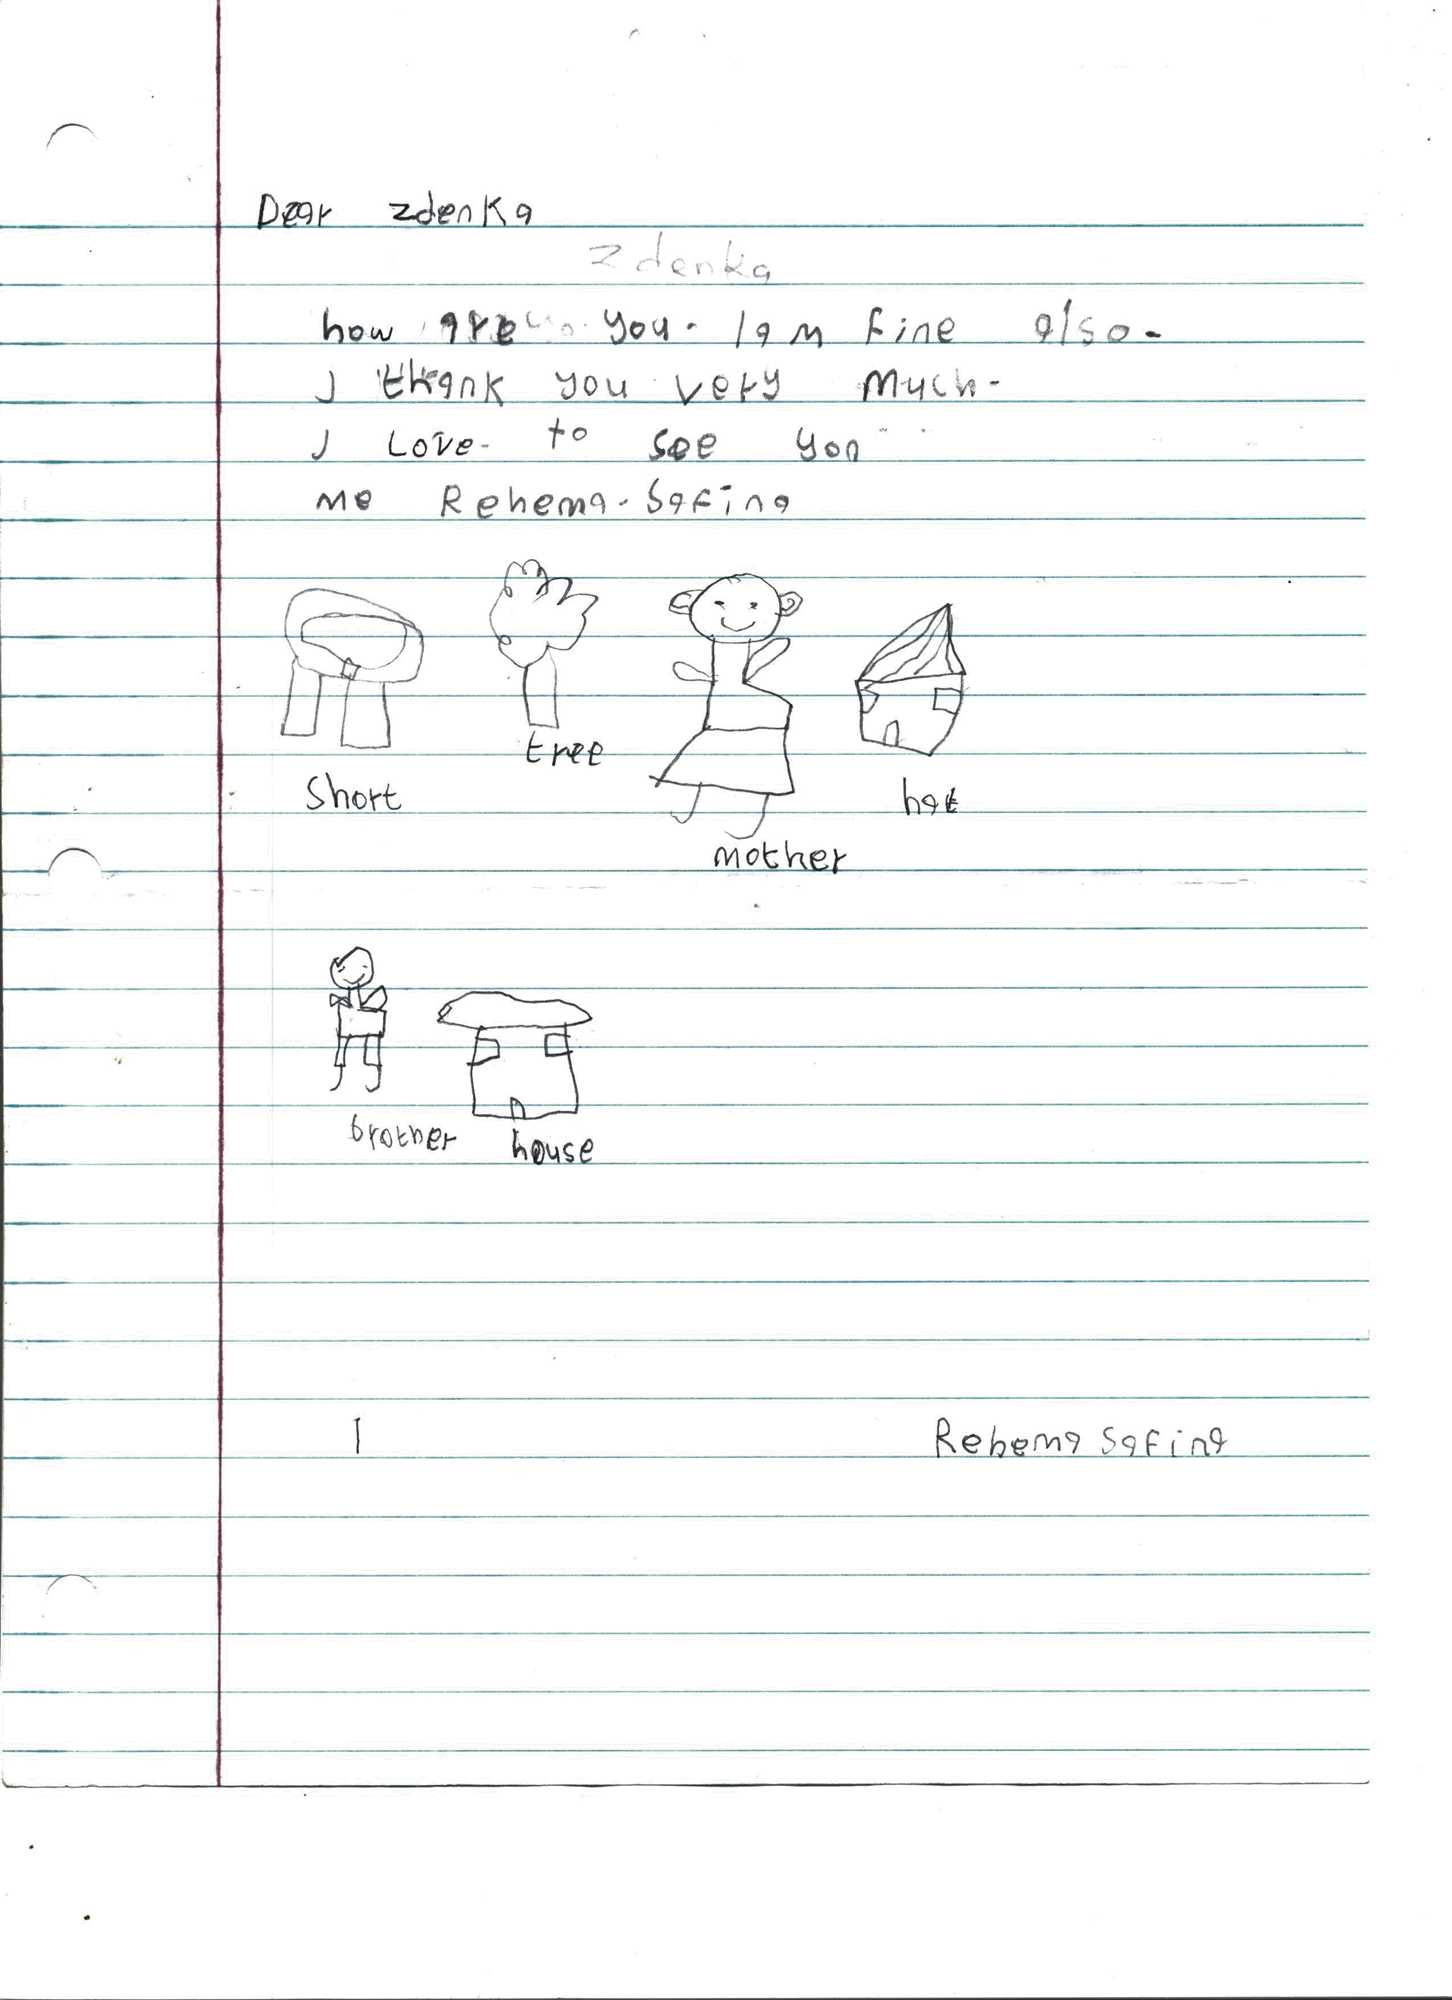 Dear zdenka
zdenka
how are you. I am fine also.
I thank you very much.
I Love to see you
me Rehema. Safina
tree
short
hat
mother
brother
house
Rehema Safina